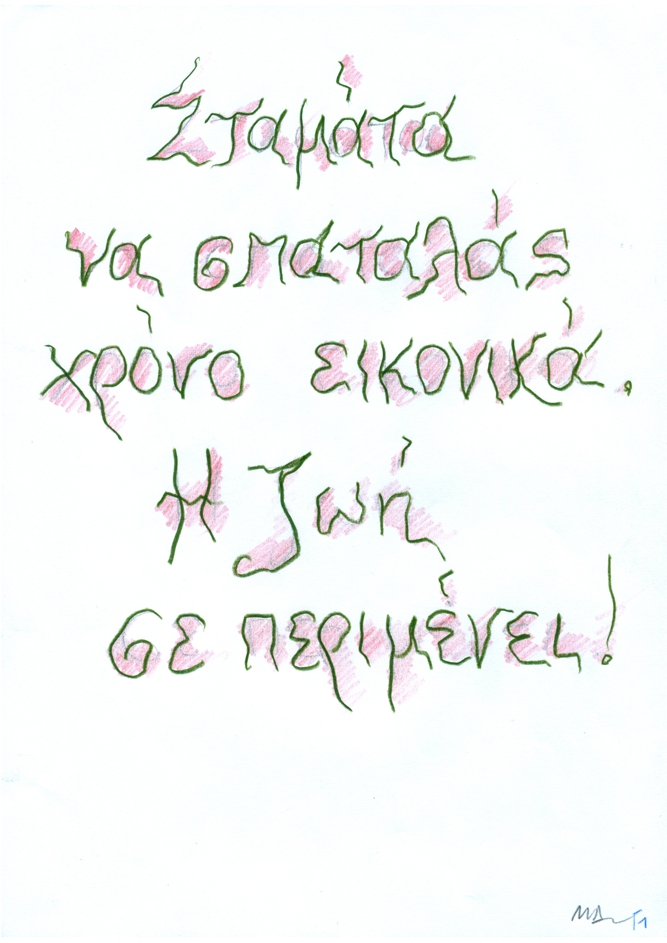 Σταμάτα
να σπαταλάς
χρόνο εικονικά.
Η ζωή
σε περιμένει!